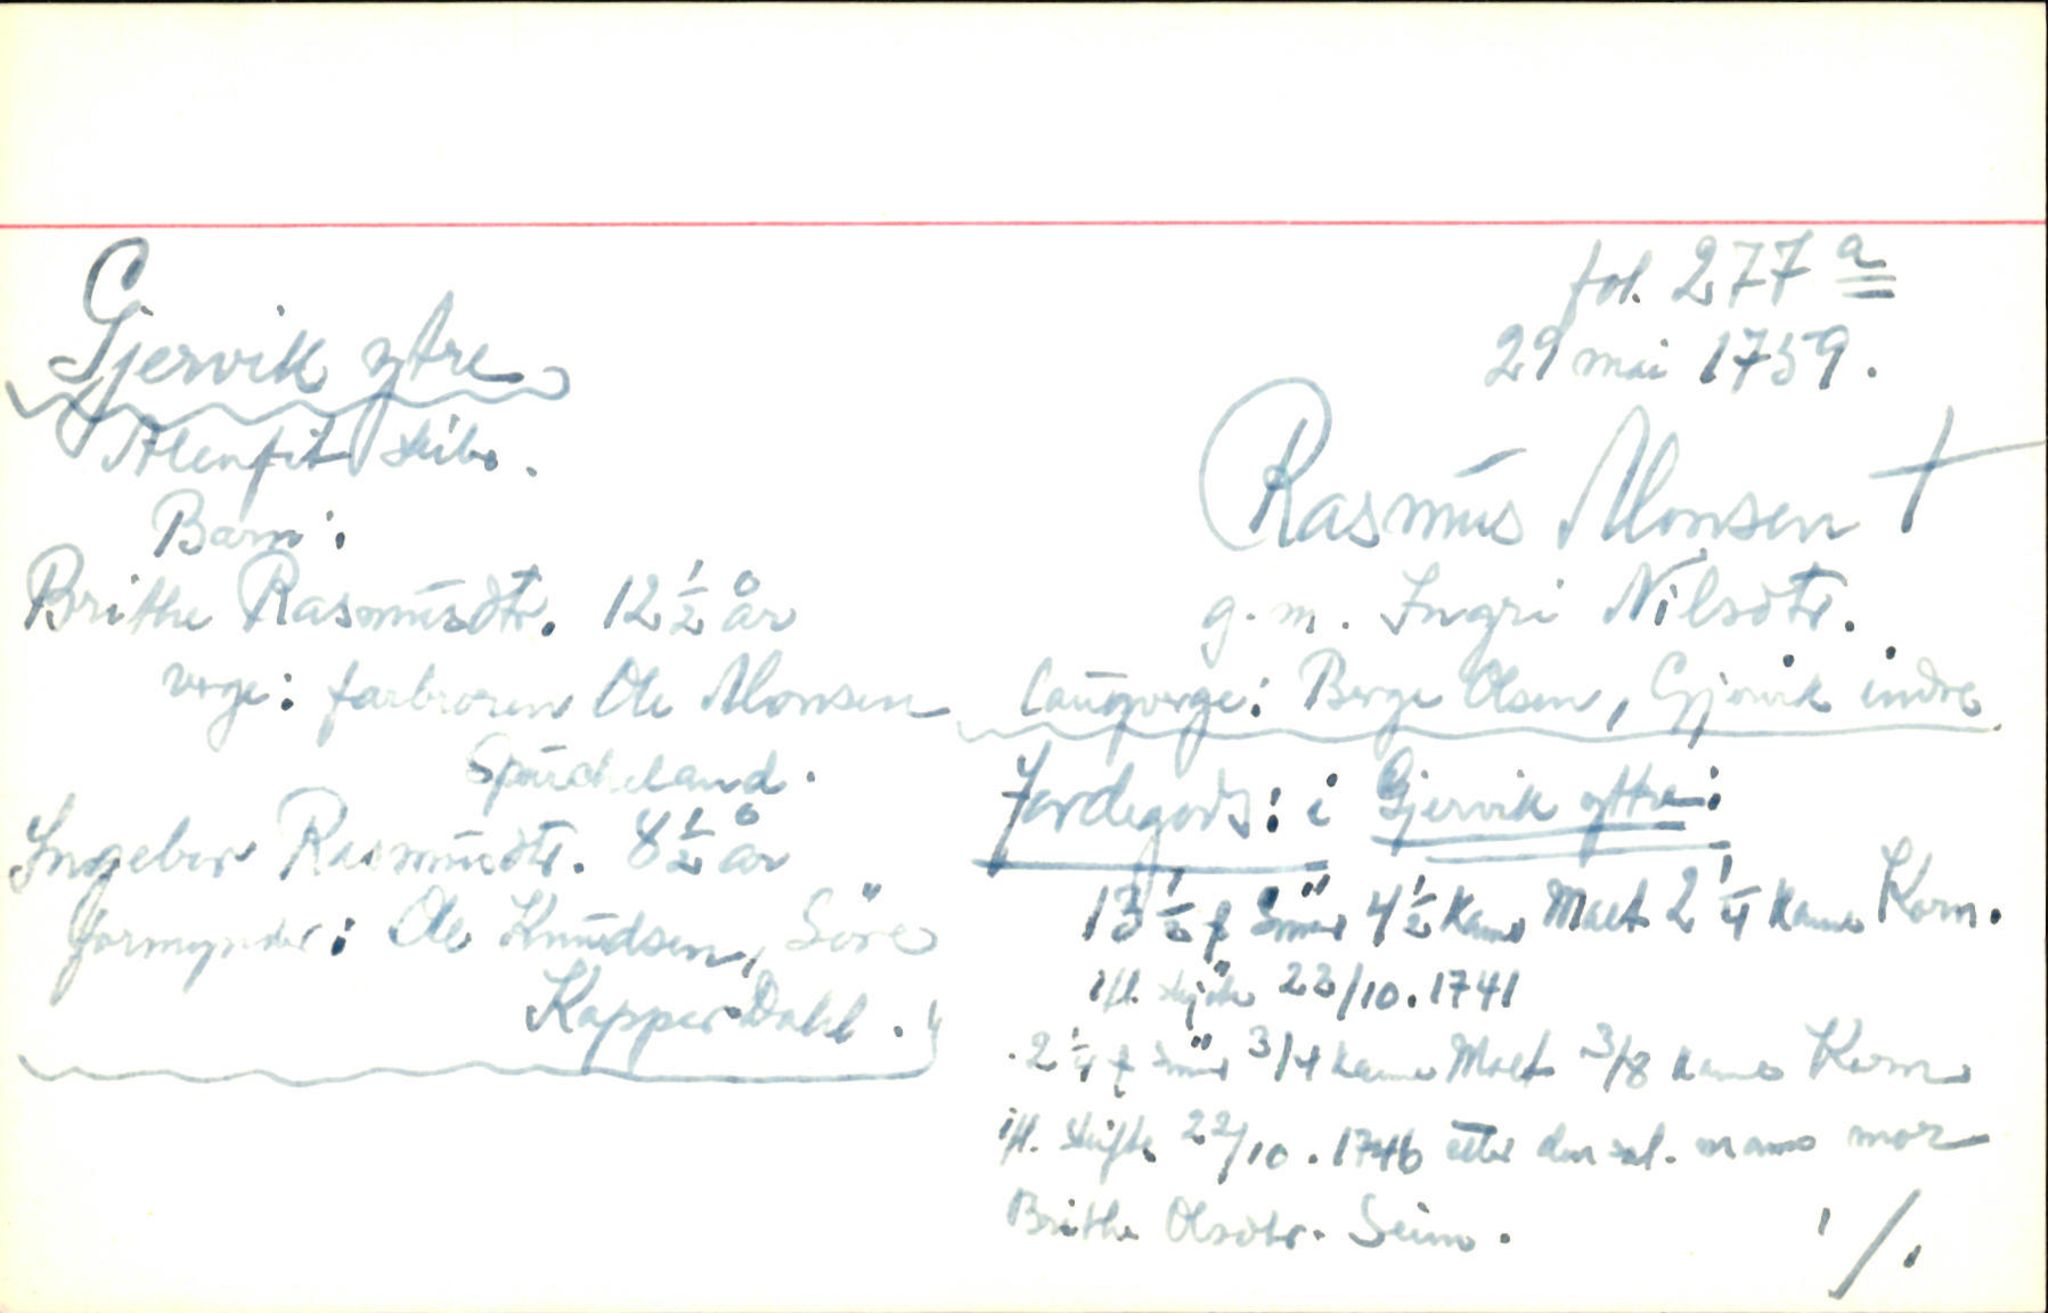 Gjervik ytre
Alenfit skibr.
Barn:
Brithe Rasmusdtr. 12 1/2 år
verge: farbroren Ole Monsen
Spurcheland.
Ingebor Rasmusdtr. 8 1/2 år
formynder: Ole Knudsen, Söre
Kapperdahl.
fol. 277 a
29 mai 1759.
Rasmus Monsen +
g. m. Ingri Nilsdtr.
Laugverge: Berge Olsen, Gjervik indre
Jordegods: i Gjervik yttre:
13 1/2 Smör 4 1/2 Kane Malt 2 1/4 Kane Korn.
ifl. skjöte 23/10. 1741
2 1/4 Smör 3/4 kane Malt 3/8 kane Korn
ifl. skifte 22/10. 1746 etter den sal. manns mor
Brithe Olsdtr. Seim.